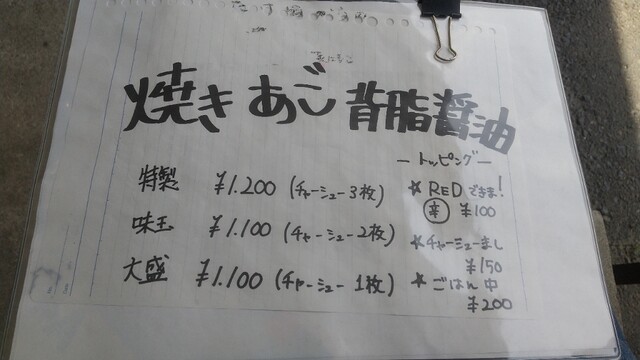 焼きあご背脂醤油
特製 ¥1.200 (チャーシュー3枚)
味玉 ¥1.100 (チャーシュー2枚)
大盛 ¥1.100 (チャーシュー1枚)
ートッピングー
★REDできま!
辛 ¥100
★チャーシューまし
¥150
★ごはん中
¥200